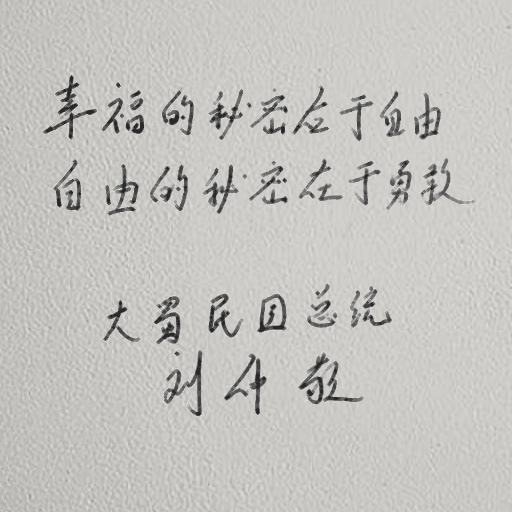 幸福的秘密在于自由
自由的秘密在于勇敢
大蜀民国总统
刘仲敬